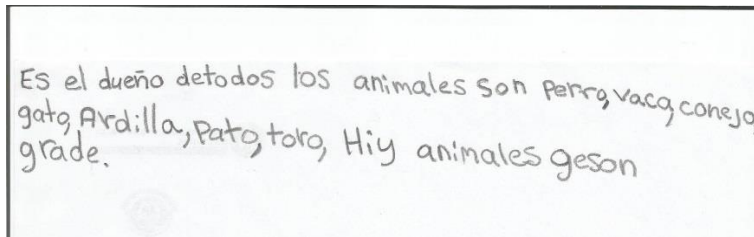 Es el dueño detodos los animales son perro, vaca, conejo
gato, Ardilla, Pato, toro, Hiy animales geson
grade.